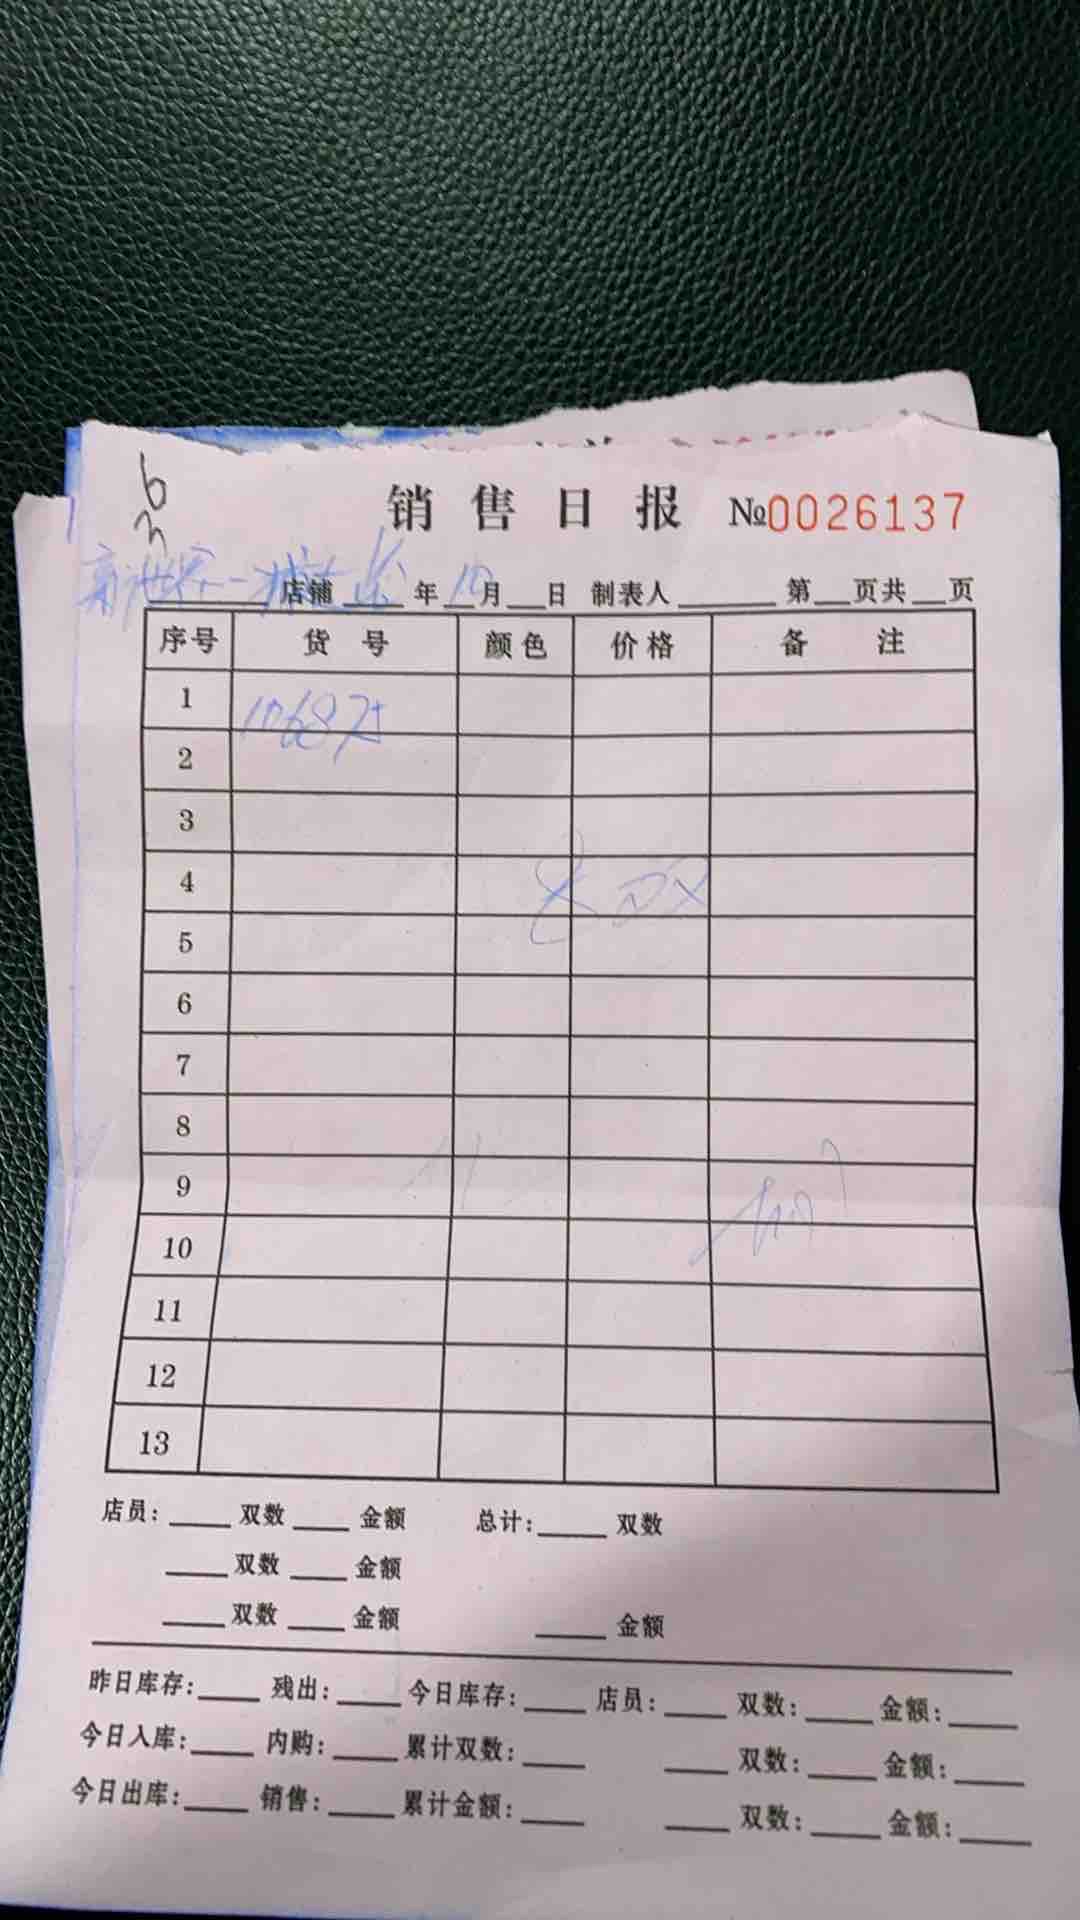 36
销售日报 №0026137
新世界一 店铺 年 10 月 日 制表人 第 页共 页
序号 货号 颜色 价格 备注
1
2
3
4
5
6
7
8
9
10
11
12
13
店员: 双数 金额 总计: 双数
双数 金额
双数 金额 金额
昨日库存: 残出: 今日库存: 店员: 双数: 金额:
今日入库: 内购: 累计双数: 双数: 金额:
今日出库: 销售: 累计金额: 双数: 金额: